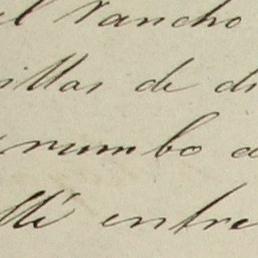 el rancho
illas de di
rumbo a
llí entre